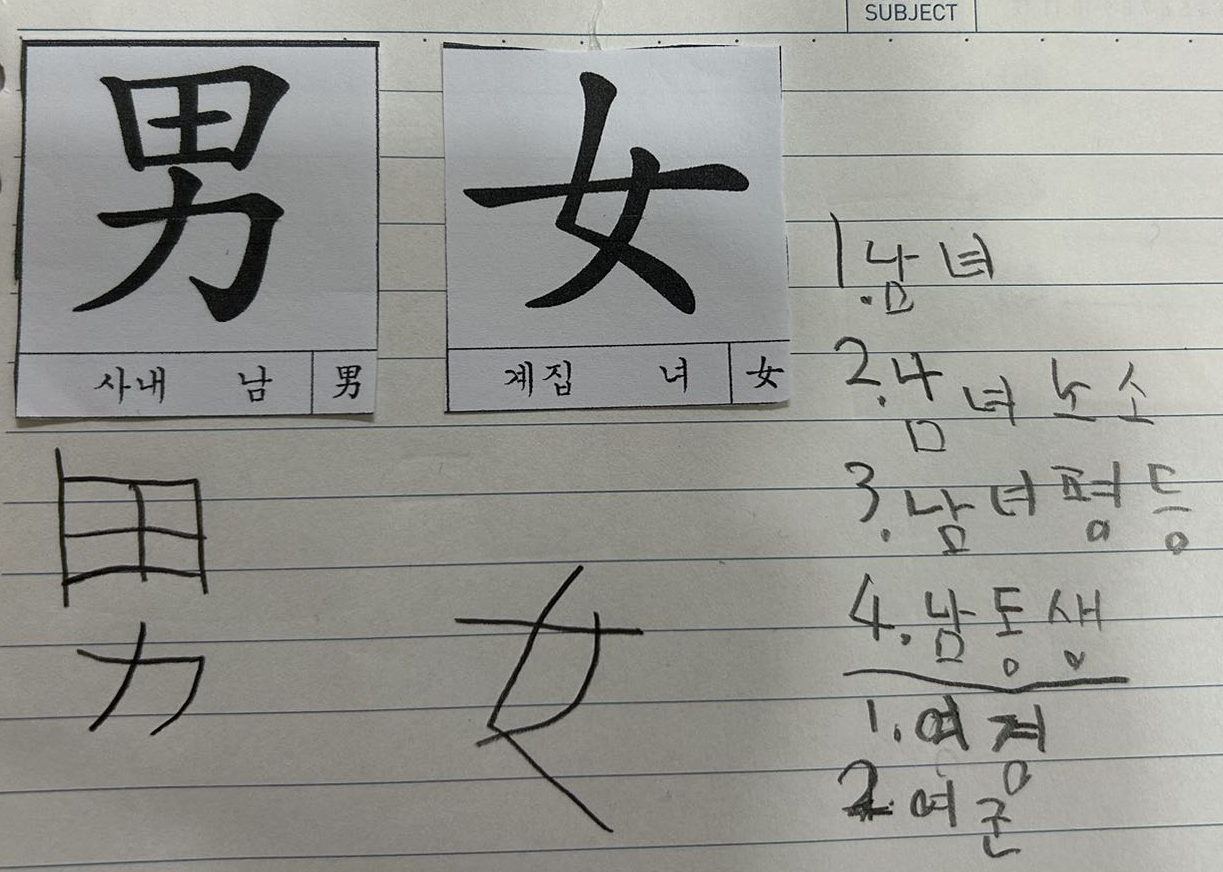 SUBJECT
男
사내 남 男
女
계집 녀 女
男
女
1. 남녀
2. 남녀노소
3. 남녀평등
4. 남동생
1. 여경
2. 여군